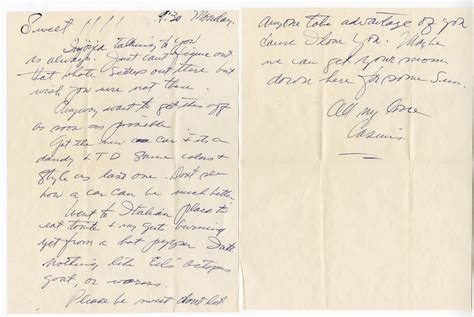 9:30 Monday.
Sweet ! ! ! !
Enjoyed talking to you
as always. Just can't figure out
that whole out there but
wish you were not there.
Anyway want to get this off
as soon as possible
Got the new car & its a
dandy LTD Same color &
style as last one. Dont see
how a car can be much better.
Went to Italian place to
eat tonite & my guts burning
yet from a hot pepper I ate
Nothing like Ed's octopus
goat, or worms.
Please be sweet dont let
Anyone take advantage of you
cause I love you. Maybe
we can get your mom
down here for some Sun.
All my love
Casimir